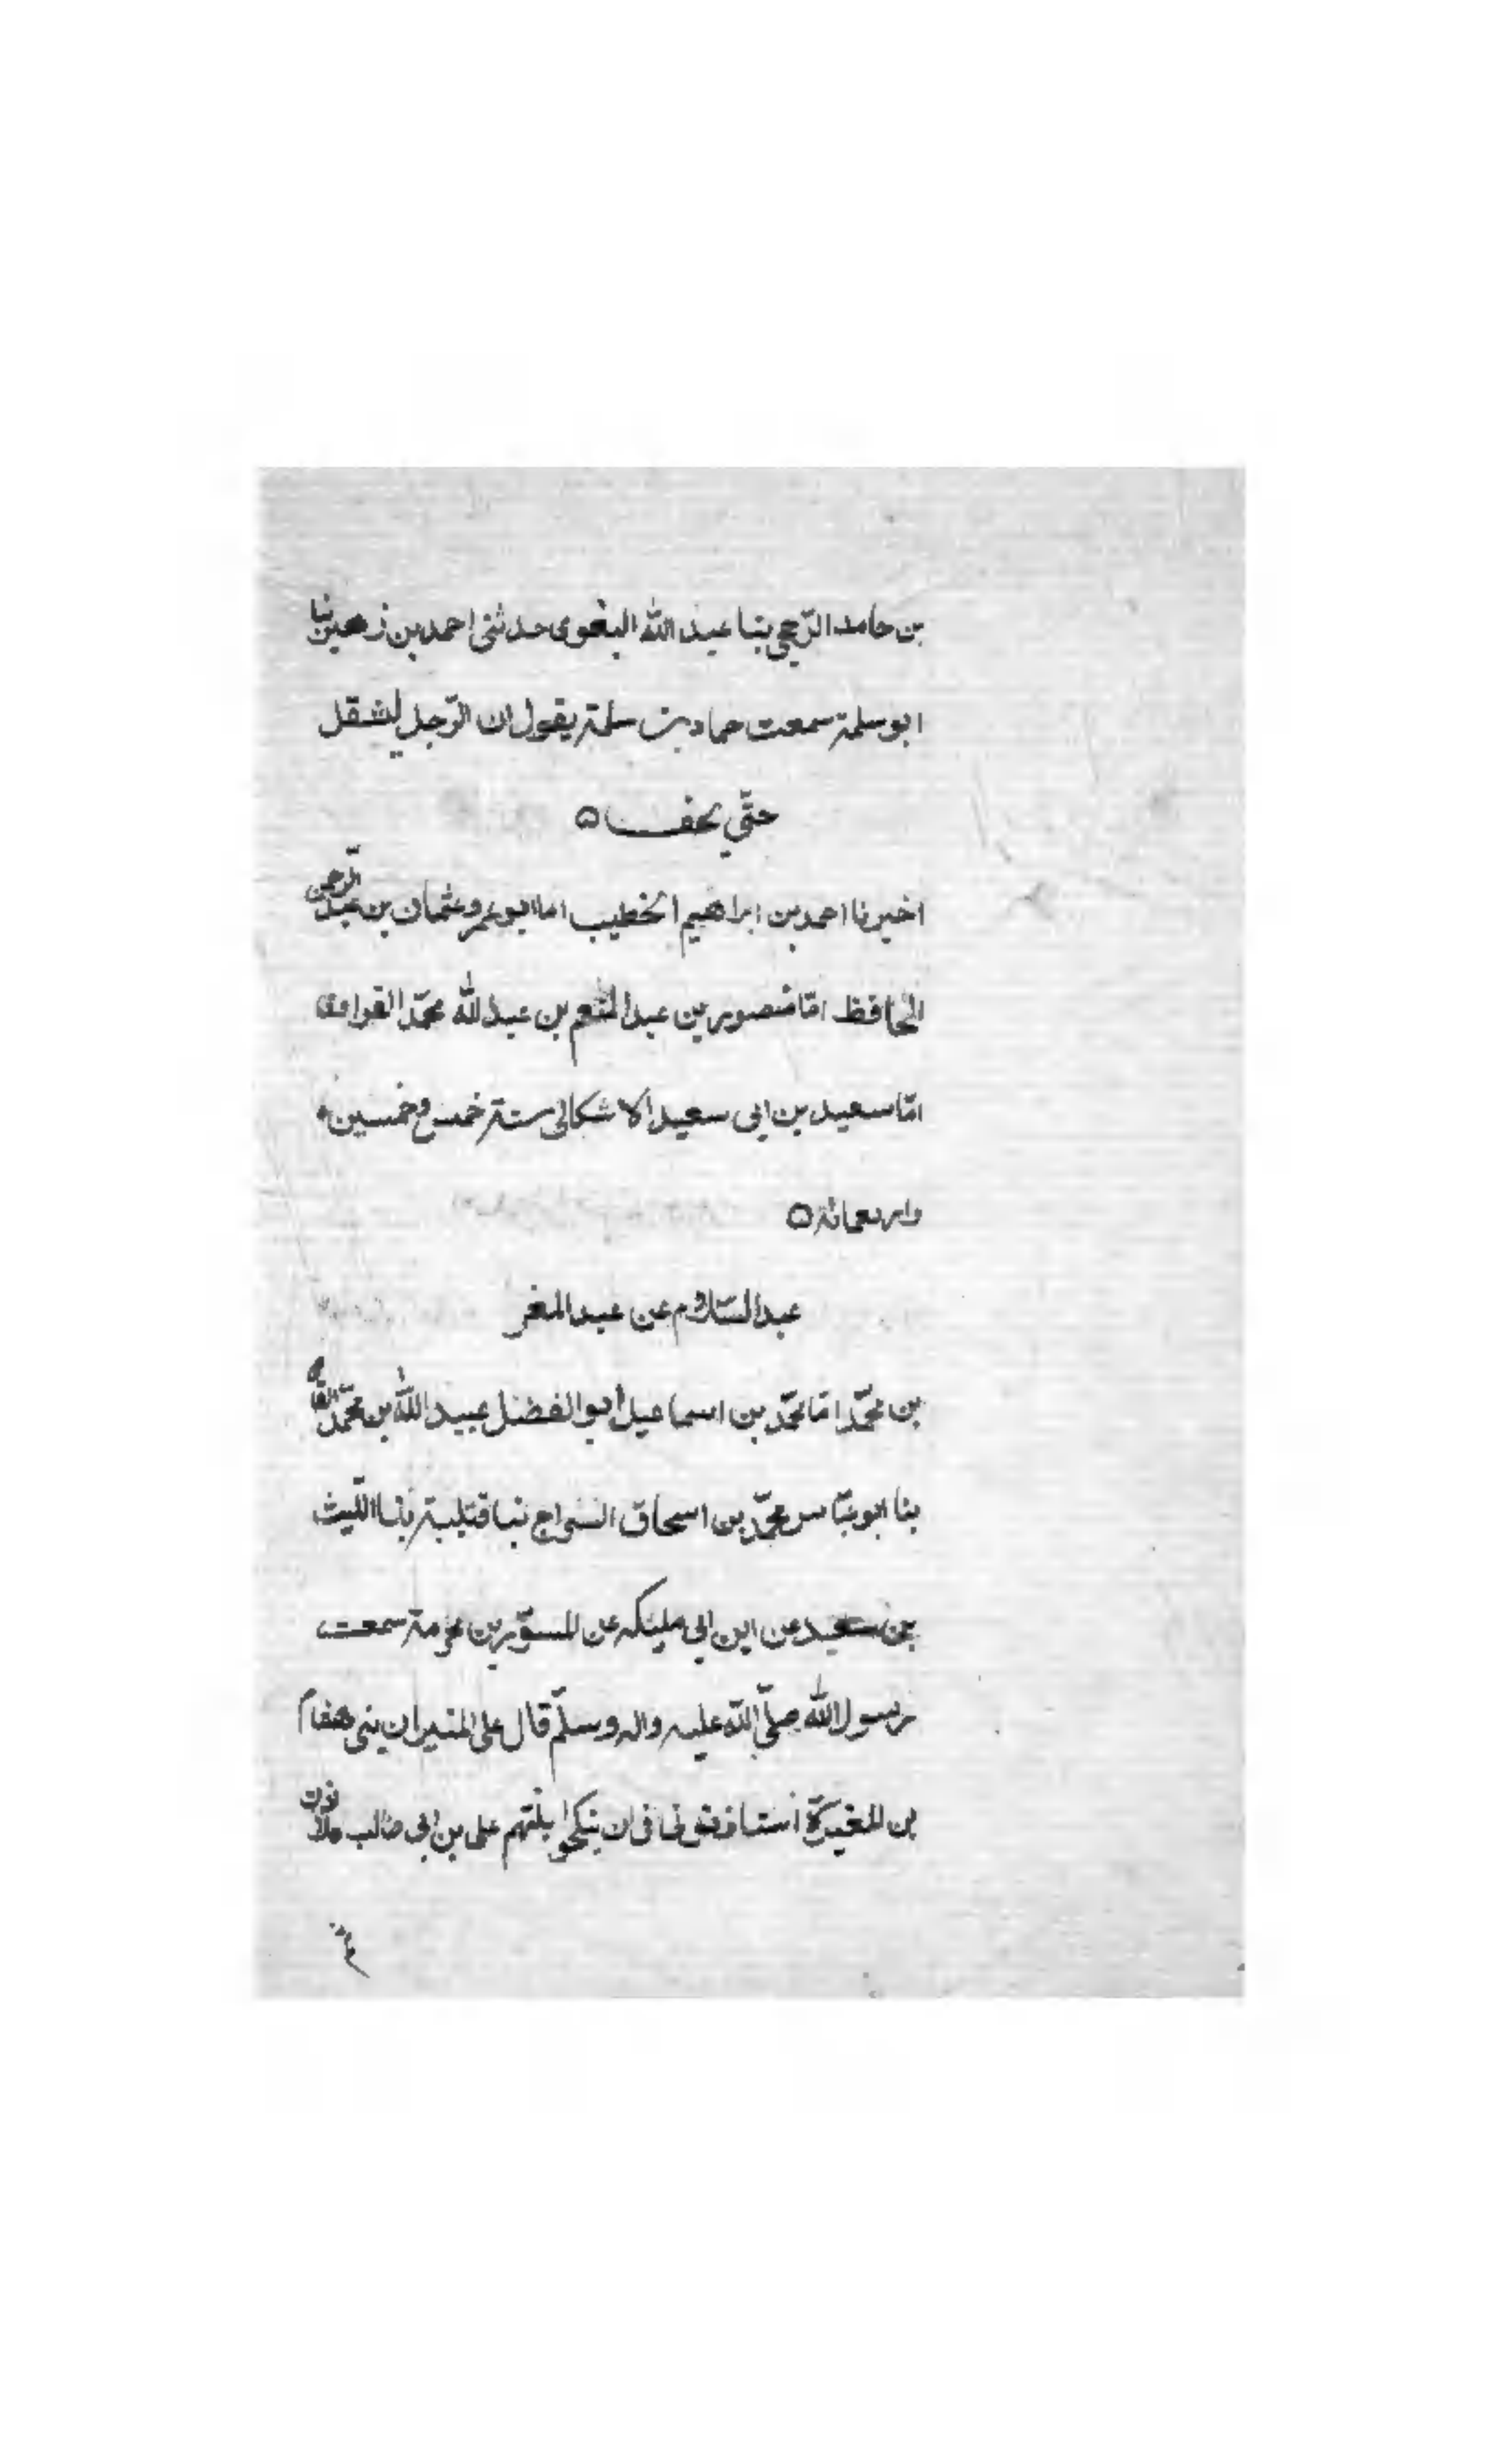 بن حامد الرّحجي بنا عبد الله البغوى حدثنى احمد بن زهير بنا
ابو سلمة سمعت حماد بن سلمة يقول ان الرّجل ليثقل
حتّي يخف ٥
اخبرنا احمد بن ابراهيم الخطيب اما ابو عمرو عثمان بن عبد الرّحمن
الحافظ امّا منصور بن عبد المنعم بن عبد الله محمّد الفراوى
امّا سعيد بن ابى سعيد الاشكالى سنة خمس وخمسين
واربعمائة ٥
عبد السّلام عن عبد المغر
بن محمّد امّا محمّد بن اسماعيل ابو الفضل عبيد الله بن محمّد
بنا ابو عبّاس محمّد بن اسحاق السّراج نبا قتيبة بنا اللّيث
بن سعيد عن ابن ابى مليكه عن المسوّر بن مخرمة سمعت
رسول الله صلّى الله عليه واله وسلّم قال على المنبر ان بنى هشام
بن المغيرة استاذنونى فى ان ينكحوا بنتهم على بن ابى طالب فلا اذن